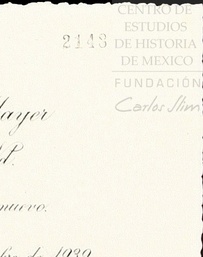 CENTRO DE
ESTUDIOS
DE HISTORIA
DE MEXICO
FUNDACIÓN
Carlos Slim
2148
Mayer
nuevo.
de 1939